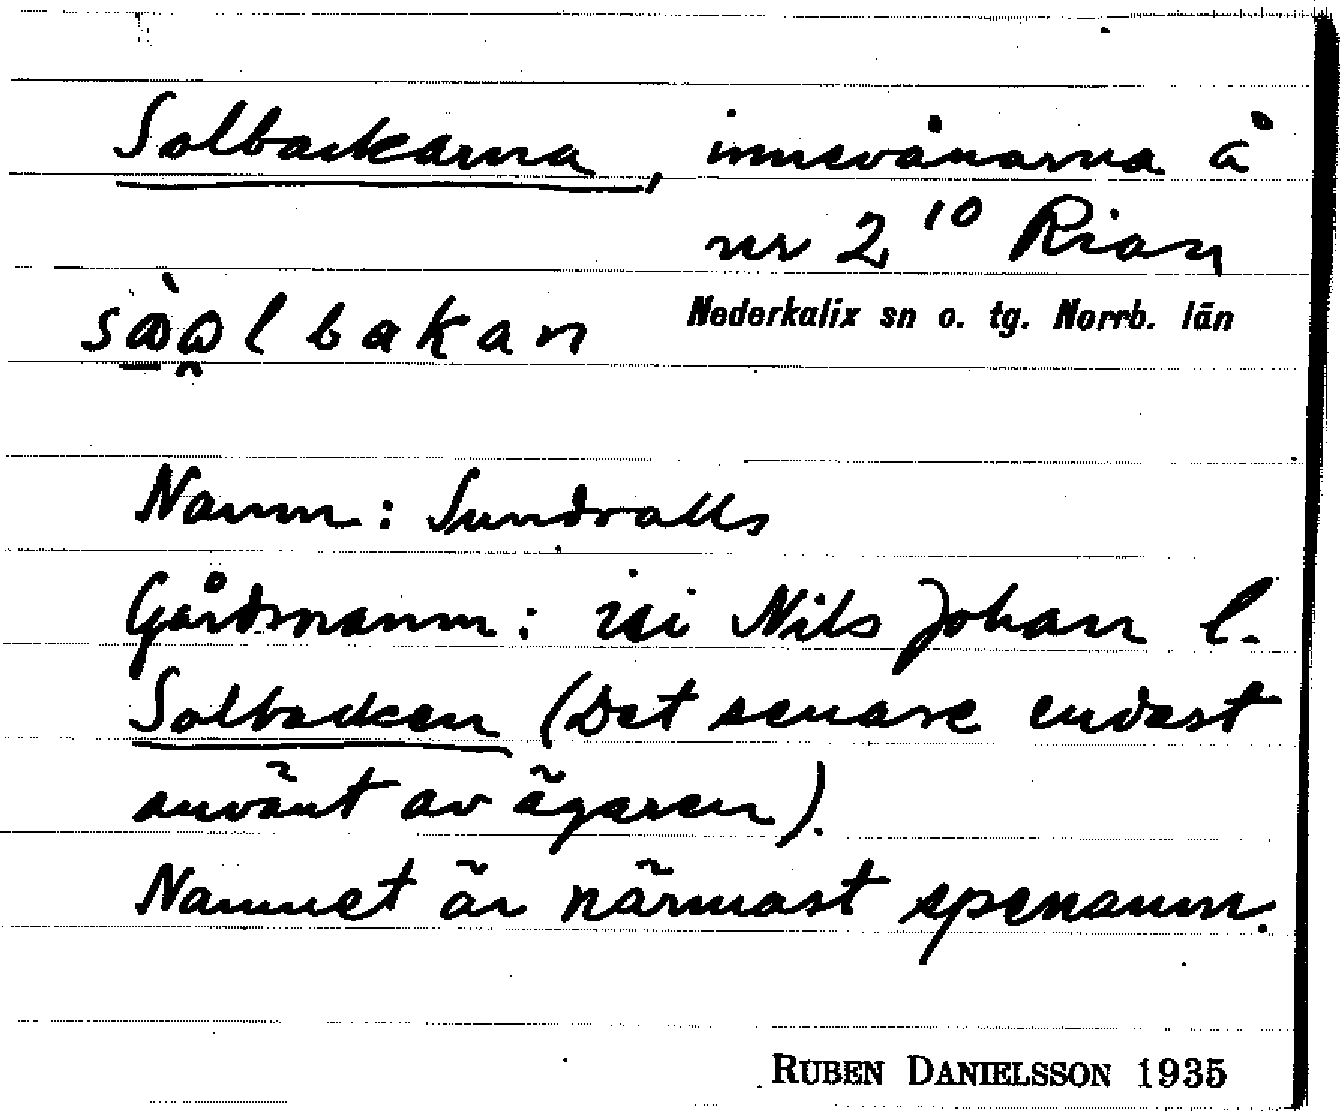 Solbackarna, innevånarna å
nr 2¹⁰ Rian
Nederkalix sn o. tg. Norrb. län
Namn: Sundvalls
Gårdsnamn: isi Nils Johan l.
Solbacken (Det senare endast
använt av ägaren).
Namnet är närmast spenamn.
RUBEN DANIELSSON 1935